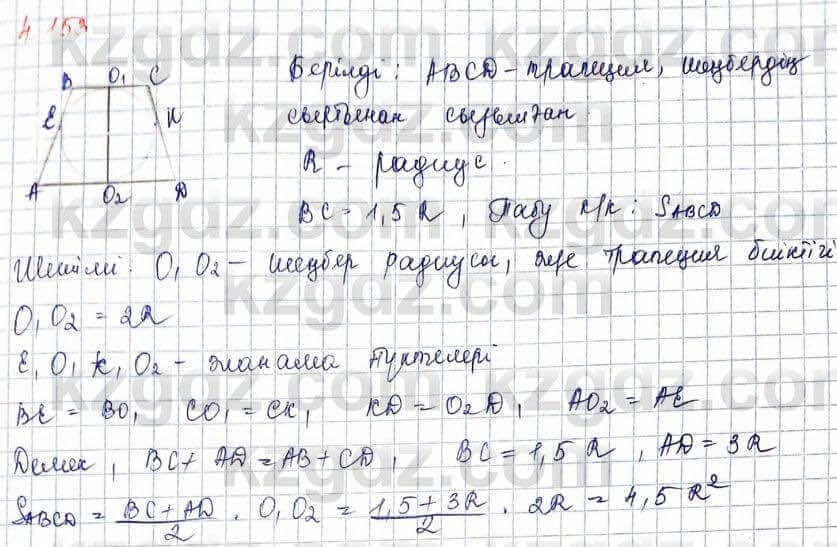 4.153
B O₁ C
E K
A O₂ D
Берілді: ABCD – трапеция, шеңбердің
сыртынан сызылған.
R – радиус.
BC = 1,5 R, Табу к/к: SABCD
Шешімі: O₁O₂ – шеңбер радиусы, әрі трапеция биіктігі
O₁O₂ = 2R
E, O₁, K, O₂ – жанама нүктелері
BE = BO₁ CO₁ = CK, KD = O₂D, AO₂ = AE
Демек, BC + AD = AB + CD, BC = 1,5 R, AD = 3R
SABCD = BC + AD / 2 · O₁O₂ = 1,5 + 3R / 2 · 2R = 4,5 R²
kzgdz.com